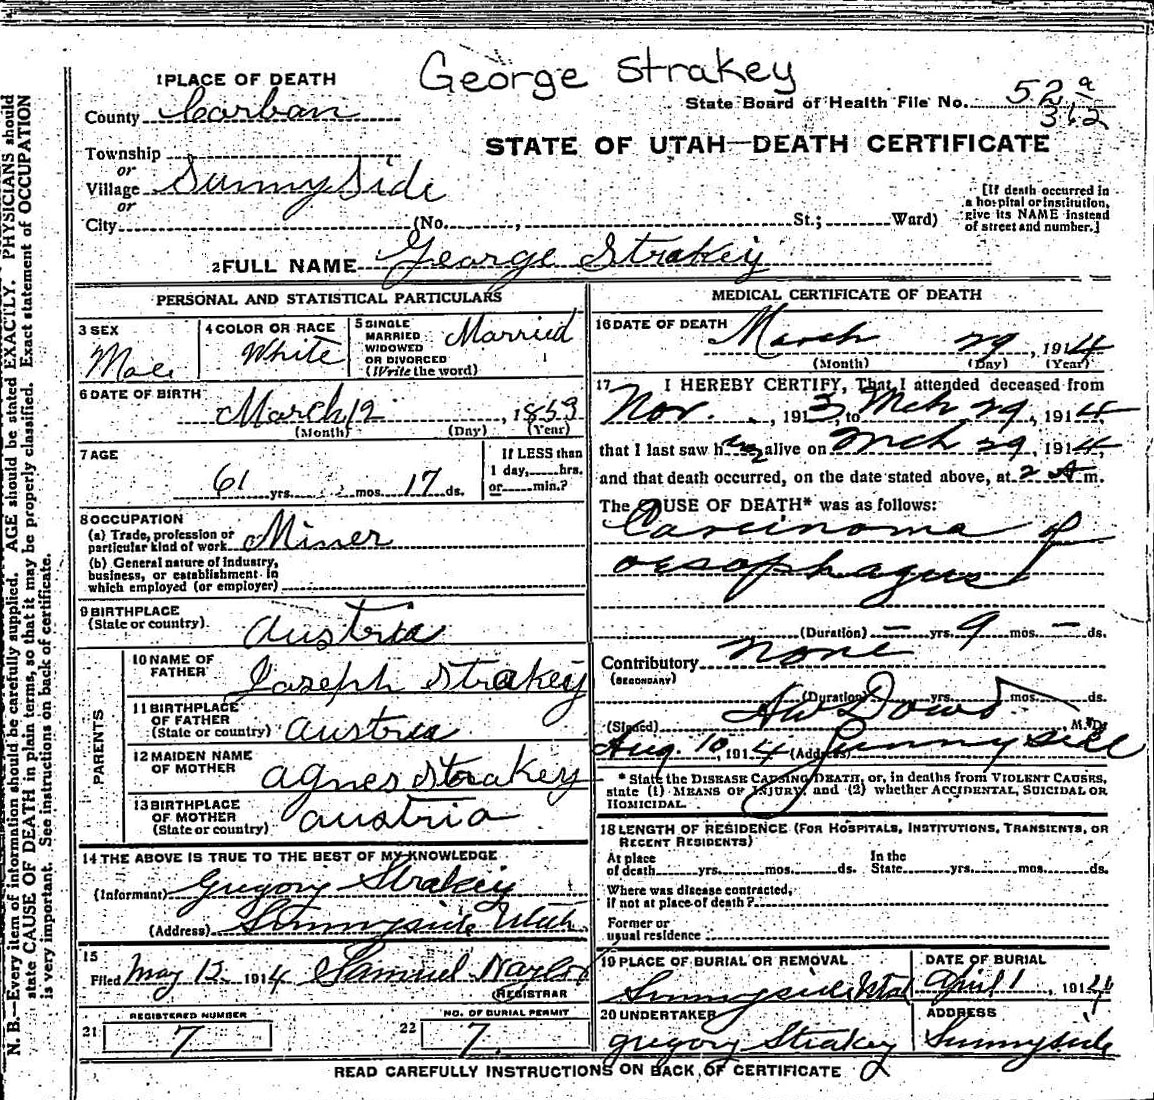 George Strakey
1 PLACE OF DEATH
County Carban
State Board of Health File No. 52 a
362
STATE OF UTAH—DEATH CERTIFICATE
Township
or
Village Sunny Side
or
City (No. , St.; Ward)
[If death occurred in a hospital or institution, give its NAME instead of street and number.]
2 FULL NAME George Strakey
PERSONAL AND STATISTICAL PARTICULARS
3 SEX Male
4 COLOR OR RACE White
5 SINGLE MARRIED WIDOWED OR DIVORCED (Write the word) Married
6 DATE OF BIRTH March 12, 1853
(Month) (Day) (Year)
7 AGE 61 yrs. mos. 17 ds.
If LESS than 1 day, hrs. or min.?
8 OCCUPATION
(a) Trade, profession or particular kind of work Miner
(b) General nature of industry, business, or establishment in which employed (or employer)
9 BIRTHPLACE (State or country) Austria
PARENTS
10 NAME OF FATHER Joseph Strakey
11 BIRTHPLACE OF FATHER (State or country) Austria
12 MAIDEN NAME OF MOTHER Agnes Strakey
13 BIRTHPLACE OF MOTHER (State or country) Austria
14 THE ABOVE IS TRUE TO THE BEST OF MY KNOWLEDGE
(Informant) Gregory Strakey
(Address) Sunnyside Utah
15
Filed May 12 1914 Samuel Naylor
REGISTRAR
21 REGISTERED NUMBER 7
22 NO. OF BURIAL PERMIT 7
MEDICAL CERTIFICATE OF DEATH
16 DATE OF DEATH March 29, 1914
(Month) (Day) (Year)
17 I HEREBY CERTIFY, That I attended deceased from
Nov. , 1913, to Mch 29, 1914
that I last saw him alive on Mch 29, 1914,
and that death occurred, on the date stated above, at 2 A m.
The CAUSE OF DEATH* was as follows:
Carcinoma of
oesophagus
(Duration) — yrs. 9 mos. — ds.
Contributory None
(SECONDARY)
(Duration) yrs. mos. ds.
(Signed) A W Dowd M. D.
Aug. 10, 1914 (Address) Sunnyside
* State the DISEASE CAUSING DEATH, or, in deaths from VIOLENT CAUSES,
state (1) MEANS OF INJURY; and (2) whether ACCIDENTAL, SUICIDAL OR
HOMICIDAL.
18 LENGTH OF RESIDENCE (FOR HOSPITALS, INSTITUTIONS, TRANSIENTS, OR
RECENT RESIDENTS)
At place of death yrs. mos. ds. In the State yrs. mos. ds.
Where was disease contracted,
if not at place of death?
Former or
usual residence
19 PLACE OF BURIAL OR REMOVAL Sunnyside Utah
DATE OF BURIAL April 1, 1914
20 UNDERTAKER Gregory Strakey
ADDRESS Sunnyside
READ CAREFULLY INSTRUCTIONS ON BACK OF CERTIFICATE
N. B.—Every item of information should be carefully supplied. AGE should be stated EXACTLY. PHYSICIANS should
state CAUSE OF DEATH in plain terms, so that it may be properly classified. Exact statement of OCCUPATION
is very important. See instructions on back of certificate.